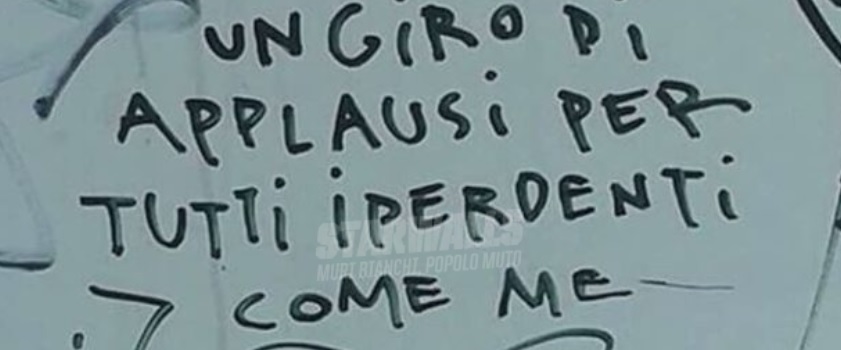 UN GiRO Di
APPLAUSi PER
TUTTi iPERDENTi
COME ME
STARWALLS
MURI BIANCHI, POPOLO MUTO